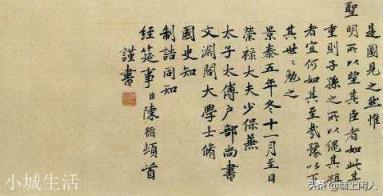 是圖見之然惟
聖明所以望其臣者如此其
重則子孫之所以俾其祖
者宜何如其至哉豫以下
其世世勉之
景泰五年冬十一月至日
榮祿大夫少保兼
太子太傅戶部尚書
文淵閣大學士脩
國史知
制誥同知
經筵事臣陳循頓首
謹書
小城生活